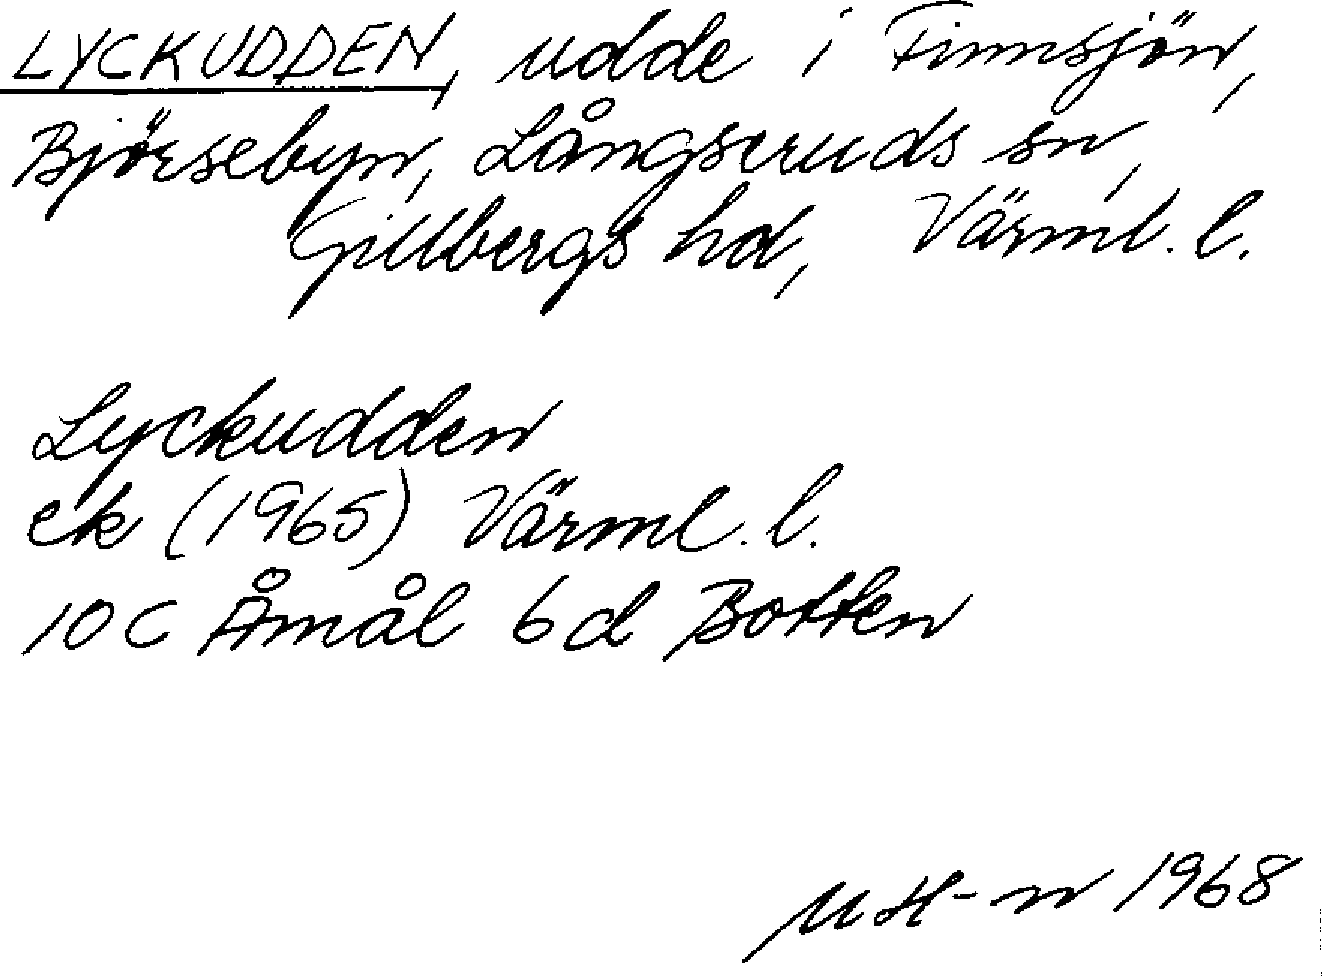 LYCKUDDEN, udde i Finnsjön,
Björsebyn, Långseruds sn,
Gillbergs hd, Värml. l.
Lyckudden
ek (1965) Värml. l.
10 C Åmål 6d Botten
MH-n 1968